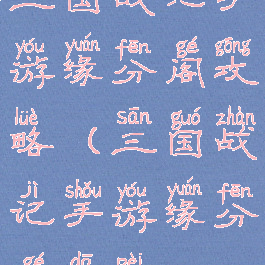 三国战记手
yóu yuán fēn gé gōng
游缘分阁攻
lüè sān guó zhàn
略（三国战
jì shǒu yóu yuán fēn
记手游缘分
gé dā pèi